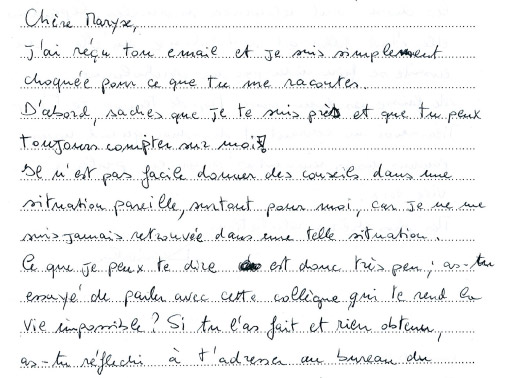 Chère Maryse,
J'ai réçu ton email et je suis simplement
choquée pour ce que tu me racontes.
D'abord, saches que je te suis près et que tu peux
toujours compter sur moi!
Il n'est pas facile donner des conseils dans une
situation pareille, surtout pour moi, car je ne me
suis jamais retrouvée dans une telle situation.
Ce que je peux te dire est donc très peu; as-tu
essayé de parler avec cette collègue qui te rend la
vie impossible? Si tu l'as fait et rien obtenu,
as-tu réflechi à t'adresser au bureau du